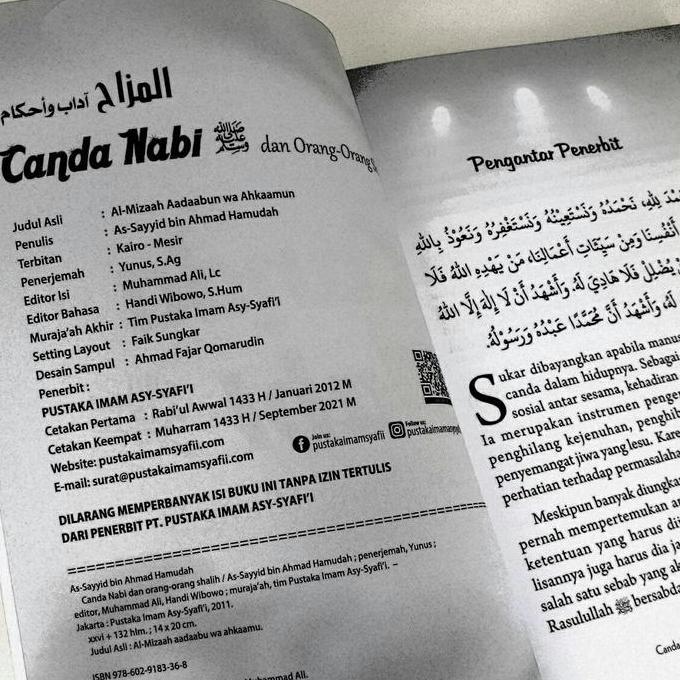 المزاح آداب وأحكام
Canda Nabi ﷺ dan Orang-Orang
Judul Asli : Al-Mizaah Aadaabun wa Ahkaamun
Penulis : As-Sayyid bin Ahmad Hamudah
Terbitan : Kairo - Mesir
Penerjemah : Yunus, S.Ag
Editor Isi : Muhammad Ali, Lc
Editor Bahasa : Handi Wibowo, S.Hum
Muraja'ah Akhir : Tim Pustaka Imam Asy-Syafi'i
Setting Layout : Faik Sungkar
Desain Sampul : Ahmad Fajar Qomarudin
Penerbit :
PUSTAKA IMAM ASY-SYAFI'I
Cetakan Pertama : Rabi'ul Awwal 1433 H / Januari 2012 M
Cetakan Keempat : Muharram 1433 H / September 2021 M
Website: pustakaimamsyafii.com
E-mail: surat@pustakaimamsyafii.com
Join us:
pustakaimamsyafii
Follow us:
DILARANG MEMPERBANYAK ISI BUKU INI TANPA IZIN TERTULIS
DARI PENERBIT PT. PUSTAKA IMAM ASY-SYAFI'I
As-Sayyid bin Ahmad Hamudah
Canda Nabi dan orang-orang shalih / As-Sayyid bin Ahmad Hamudah ; penerjemah, Yunus ;
editor, Muhammad Ali, Handi Wibowo ; muraja'ah, tim Pustaka Imam Asy-Syafi'i. –
Jakarta : Pustaka Imam Asy-Syafi'i, 2011.
xxvi + 132 hlm. ; 14 x 20 cm.
Judul Asli : Al-Mizaah aadaabu wa ahkaamu.
ISBN 978-602-9183-36-8
Muhammad Ali.
Pengantar Penerbit
لِلّٰهِ، نَحْمَدُهُ وَنَسْتَعِيْنُهُ وَنَسْتَغْفِرُهُ وَنَعُوْذُ بِاللهِ
أَنْفُسِنَا وَمِنْ سَيِّئَاتِ أَعْمَالِنَا، مَنْ يَهْدِهِ اللهُ فَلَا
يُضْلِلْ فَلَا هَادِيَ لَهُ. وَأَشْهَدُ أَنْ لَا إِلٰهَ إِلَّا اللهُ
لَهُ، وَأَشْهَدُ أَنَّ مُحَمَّدًا عَبْدُهُ وَرَسُوْلُهُ.
Sukar dibayangkan apabila
canda dalam hidupnya. Sebagai
sosial antar sesama, kehadiran
Ia merupakan instrumen
penghilang kejenuhan,
penyemangat jiwa yang lesu.
perhatian terhadap
Meskipun banyak
pernah mempertemukan
ketentuan yang harus
lisannya juga harus dia
salah satu sebab yang
Rasulullah ﷺ bersabda